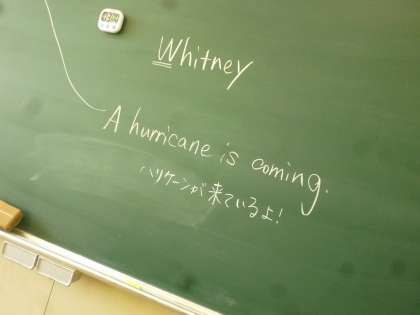 Whitney
A hurricane is coming.
ハリケーンが来ているよ!